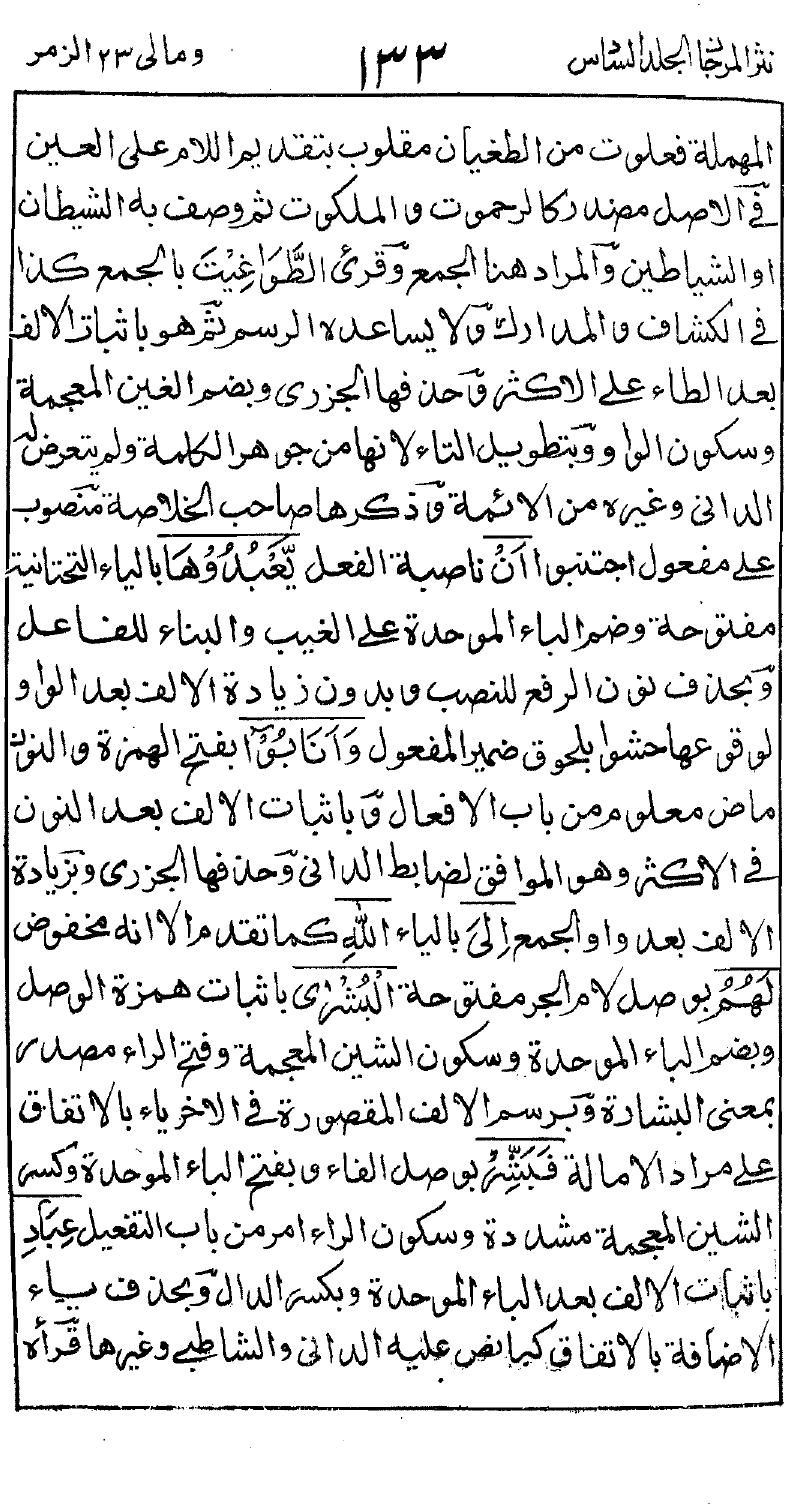 نثر المرجان الجلد السادس ١٣٣ ومالى ٢٣ الزمر
المهملة فعلوت من الطغيان مقلوب بتقديم اللام على العين
فى الاصل مصدر كالرحموت والملكوت ثم وصف به الشيطان
او الشياطين وّالمراد هنا الجمع وّقرئ الطَّوَاغِيْتَ بالجمع كذا
فى الكشاف والمدارك وّلا يساعده الرسم ثمّ هو باثبات الالف
بعد الطاء على الاكثر وّحذفها الجزرى وبضم الغين المعجمة
وسكون الواو وّبتطويل التاء لانها من جوهر الكلمة ولم يتعرض له
الدانى وغيره من الائمة وّذكرها صاحب الخلاصة منصوب
على مفعول اجتنبوا اَنْ ناصبة الفعل يَّعْبُدُوْهَا بالياء التحتانية
مفتوحة وضم الباء الموحدة على الغيب والبناء للفاعل
وّبحذف نون الرفع للنصب وبدون زيادة الالف بعد الواو
لوقوعها حشوا بلحوق ضمير المفعول وَاَنَابُوْٓا بفتح الهمزة والنون
ماض معلوم من باب الافعال وّباثبات الالف بعد النون
فى الاكثر وهو الموافق لضابط الدانى وّحذفها الجزرى وبزيادة
الالف بعد واو الجمع اِلَى بالياء اللّٰهِ كما تقدم الا انه مخفوض
لَهُمُ بوصل لام الجر مفتوحة الْبُشْرٰى باثبات همزة الوصل
وبضم الباء الموحدة وسكون الشين المعجمة وفتح الراء مصدر
بمعنى البشارة وّبرسم الالف المقصورة فى الاخر ياء بالاتفاق
على مراد الامالة فَبَشِّرْ بوصل الفاء وبفتح الباء الموحدة وكسر
الشين المعجمة مشددة وسكون الراء امر من باب التفعيل عِبَادِ
باثبات الالف بعد الباء الموحدة وبكسر الدال وّبحذف ياء
الاضافة بالاتفاق كما نص عليه الدانى والشاطبى وغيرها قّرأه